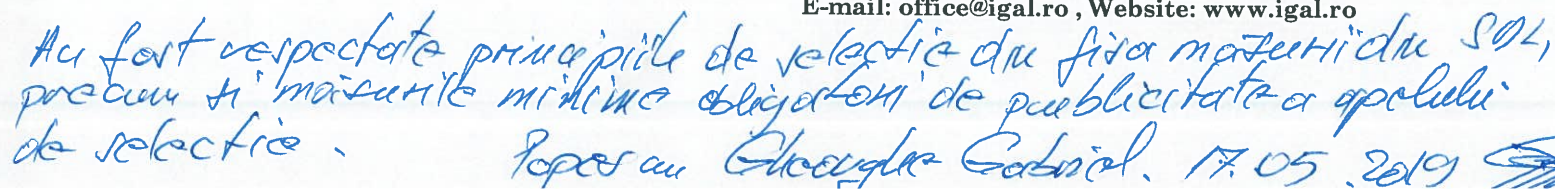 E-mail: office@igal.ro , Website: www.igal.ro
Au fost respectate principiile de selectie din fisa măsurii din SDL,
precum si măsurile minime obligatorii de publicitate a apelului
de selectie. Popescu Gheorghe Gabriel. 17.05.2019